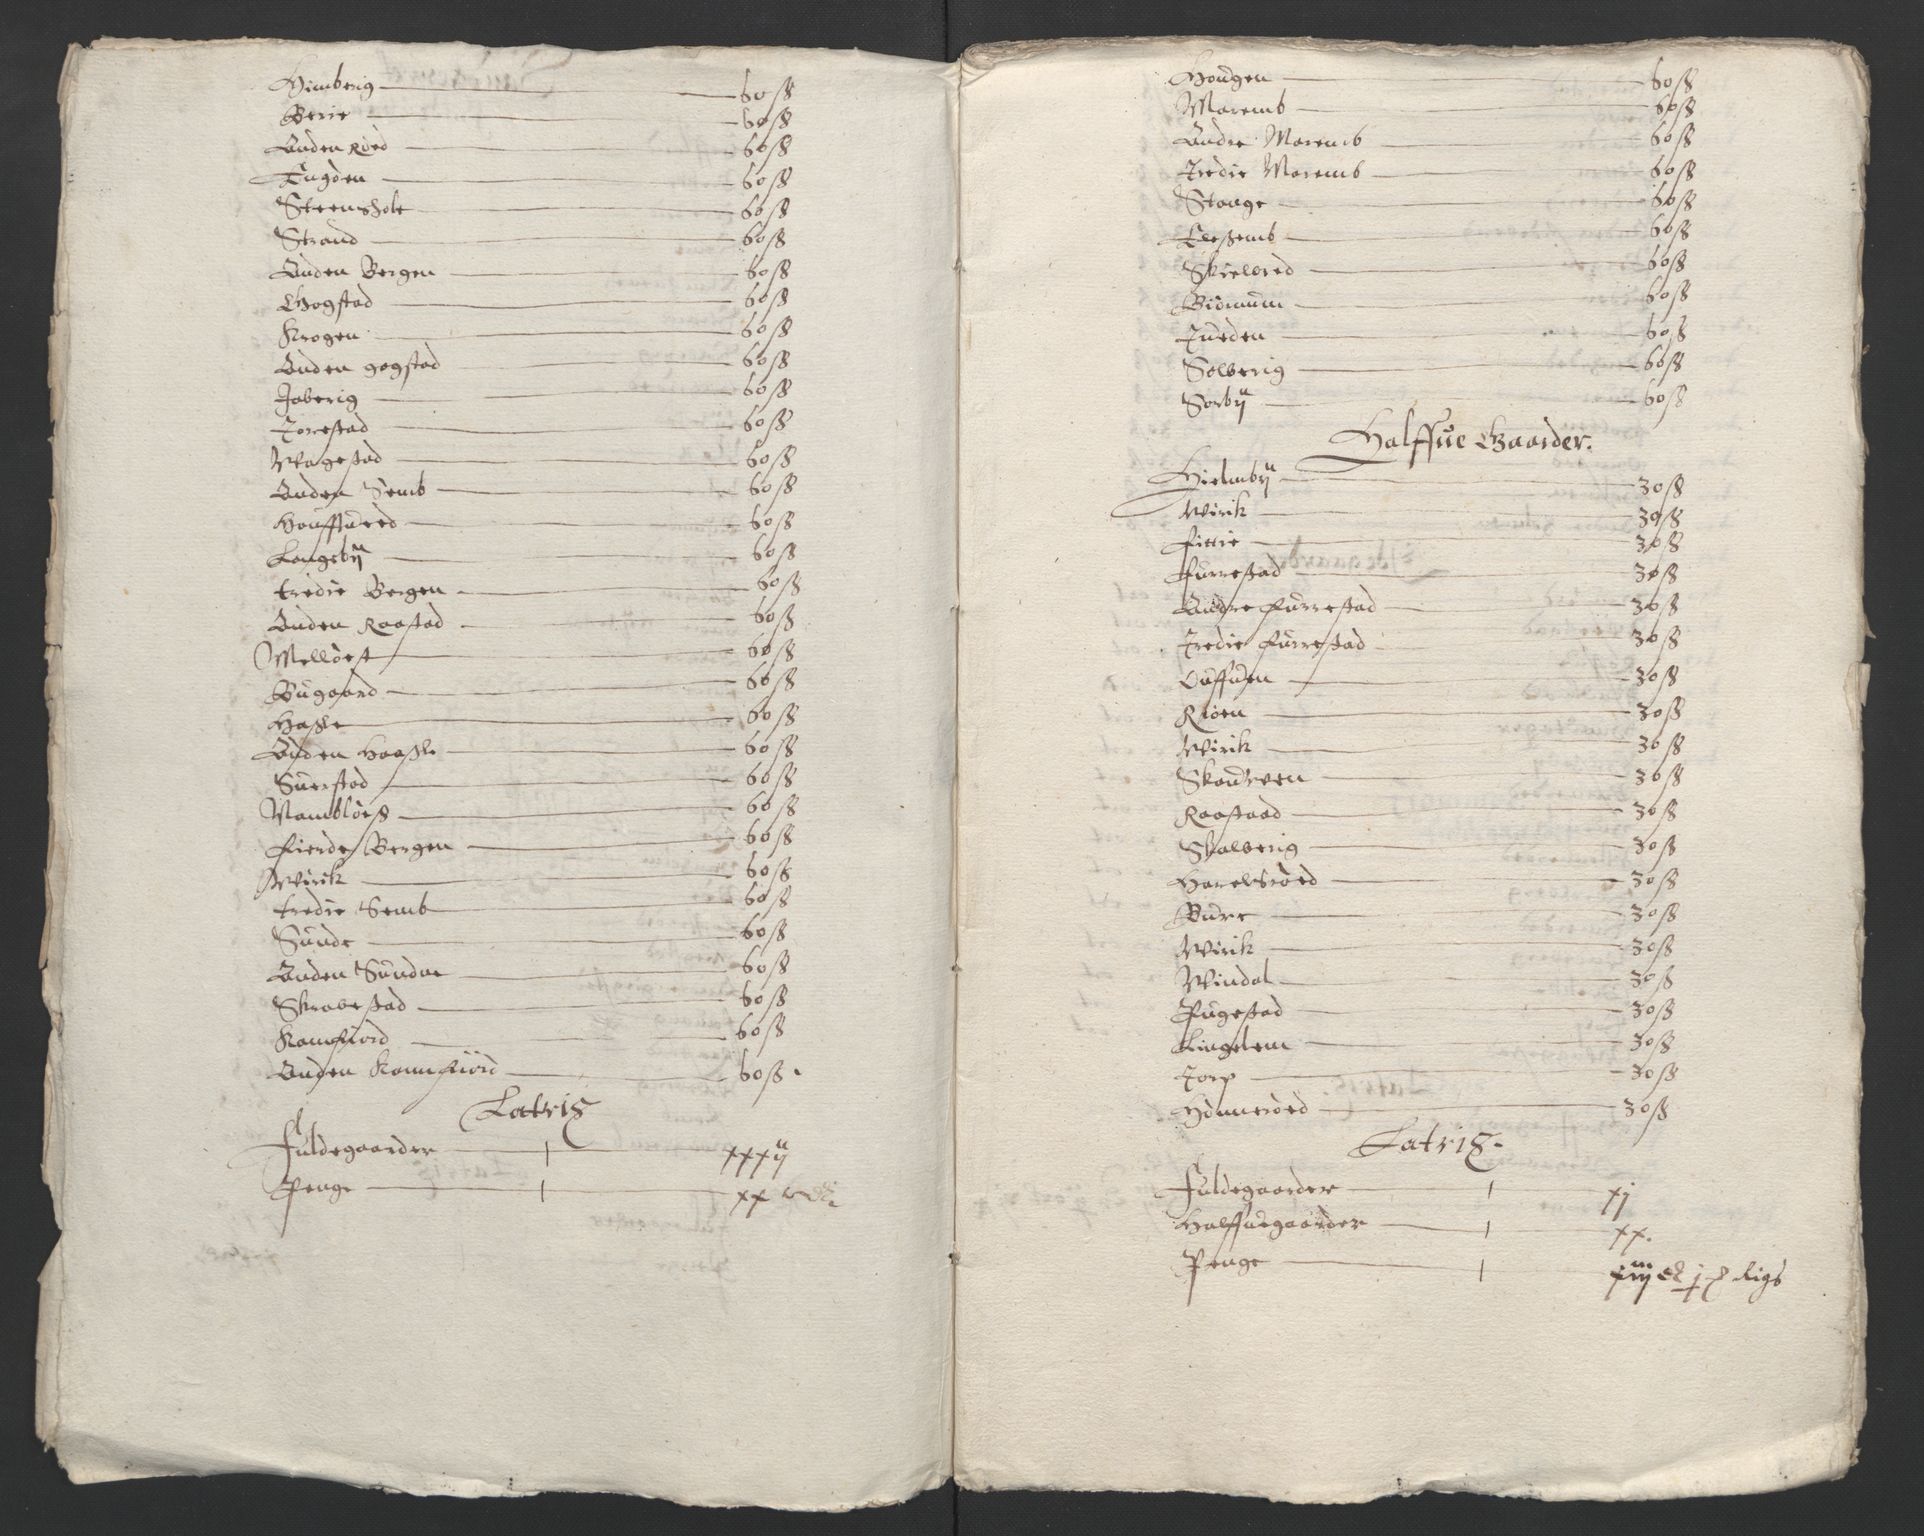 Himberig 60 ß
Berie 60 ß
Anden Røed 60 ß
Tugden 60 ß
Steensholt 60 ß
Strand 60 ß
Anden Bergen 60 ß
Gogstad 60 ß
Krogen 60 ß
Anden gogstad 60 ß
Joberig 60 ß
Torrestad 60 ß
Wagestad 60 ß
Anden Semb 60 ß
Houffuerød 60 ß
Langebÿ 60 ß
Tredie Bergen 60 ß
Anden Raastad 60 ß
Melløest 60 ß
Bugaard 60 ß
Hasle 60 ß
Anden Haasle 60 ß
Suerstad 60 ß
Nambløeß 60 ß
Fierde Bergen 60 ß
Wirik 60 ß
Tredie Semb 60 ß
Sunde 60 ß
Anden Sunde 60 ß
Skravestad 60 ß
Kamfiord 60 ß
Anden Kamfiord 60 ß
Latriß
Fuldegaarder xxxij
Penge xx

Hougen 60 ß
Maremb 60 ß
Andre Maremb 60 ß
Tredie Maremb 60 ß
Stange 60 ß
60 ß
Skielvred 60 ß
60 ß
Tueden 60 ß
Solberig 60 ß
Sorbÿ 60 ß
Halffue Gaarder.
Hielmbÿ 30 ß
Wirik 30 ß
Fittie 30 ß
Furrestad 30 ß
Andre Furrestad 30 ß
Tredie Furrestad 30 ß
30 ß
Riøen 30 ß
Wirik 30 ß
30 ß
Raastaad 30 ß
Skalberig 30 ß
Harelsrøed 30 ß
Bure 30 ß
Wirik 30 ß
Windal 30 ß
Fugestad 30 ß
Lingelem 30 ß
Torp 30 ß
Hønnerøed 30 ß
Latriß.
Fuldegaarder xj
Halffuegaarder xx.
Penge